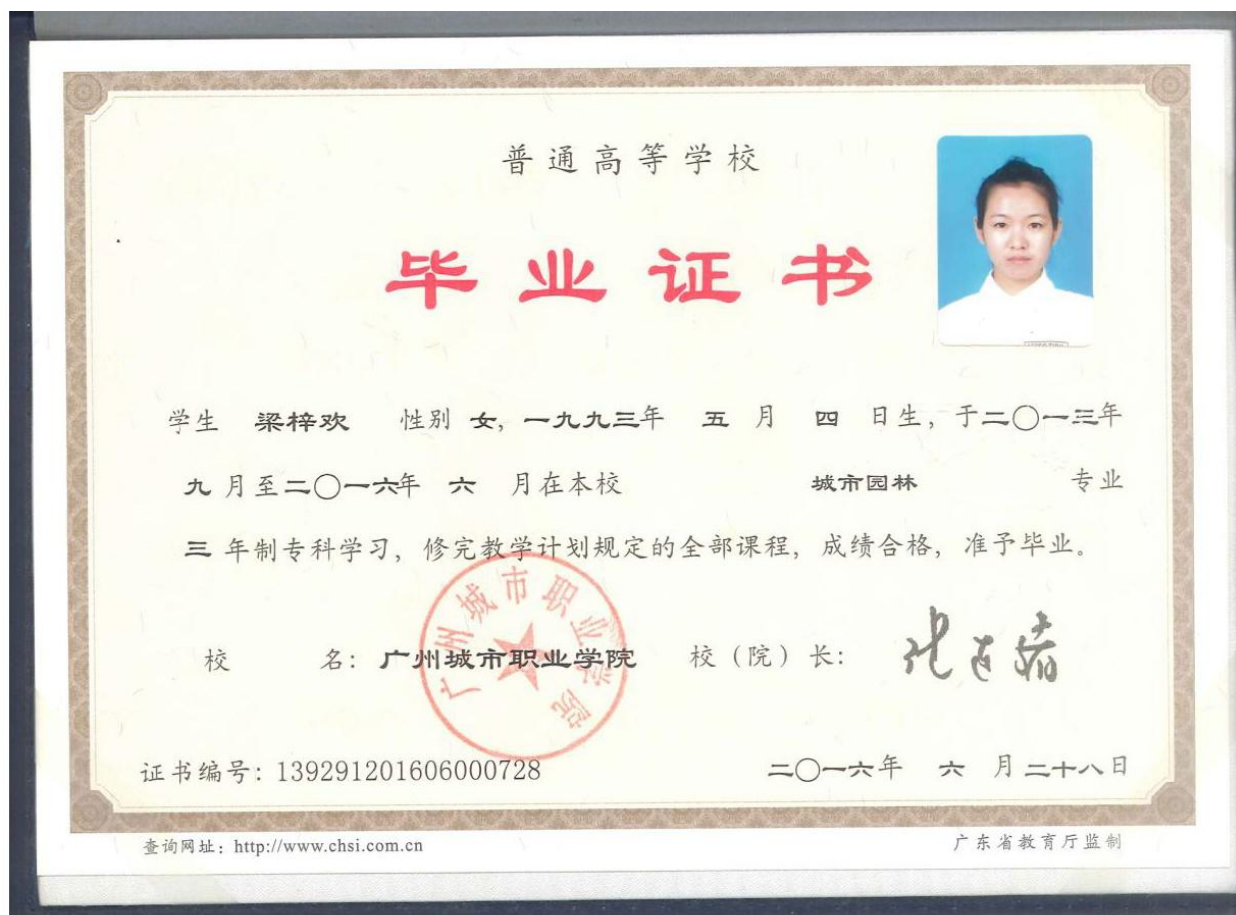 普通高等学校
毕业证书
学生 梁梓欢 性别 女, 一九九三年 五 月 四 日生, 于二〇一三年
九 月至二〇一六年 六 月在本校 城市园林 专业
三 年制专科学习, 修完教学计划规定的全部课程, 成绩合格, 准予毕业。
广州城市职业学院
校 名: 广州城市职业学院 校（院）长:
证书编号: 139291201606000728 二〇一六年 六 月二十八日
查询网址: http://www.chsi.com.cn 广东省教育厅监制